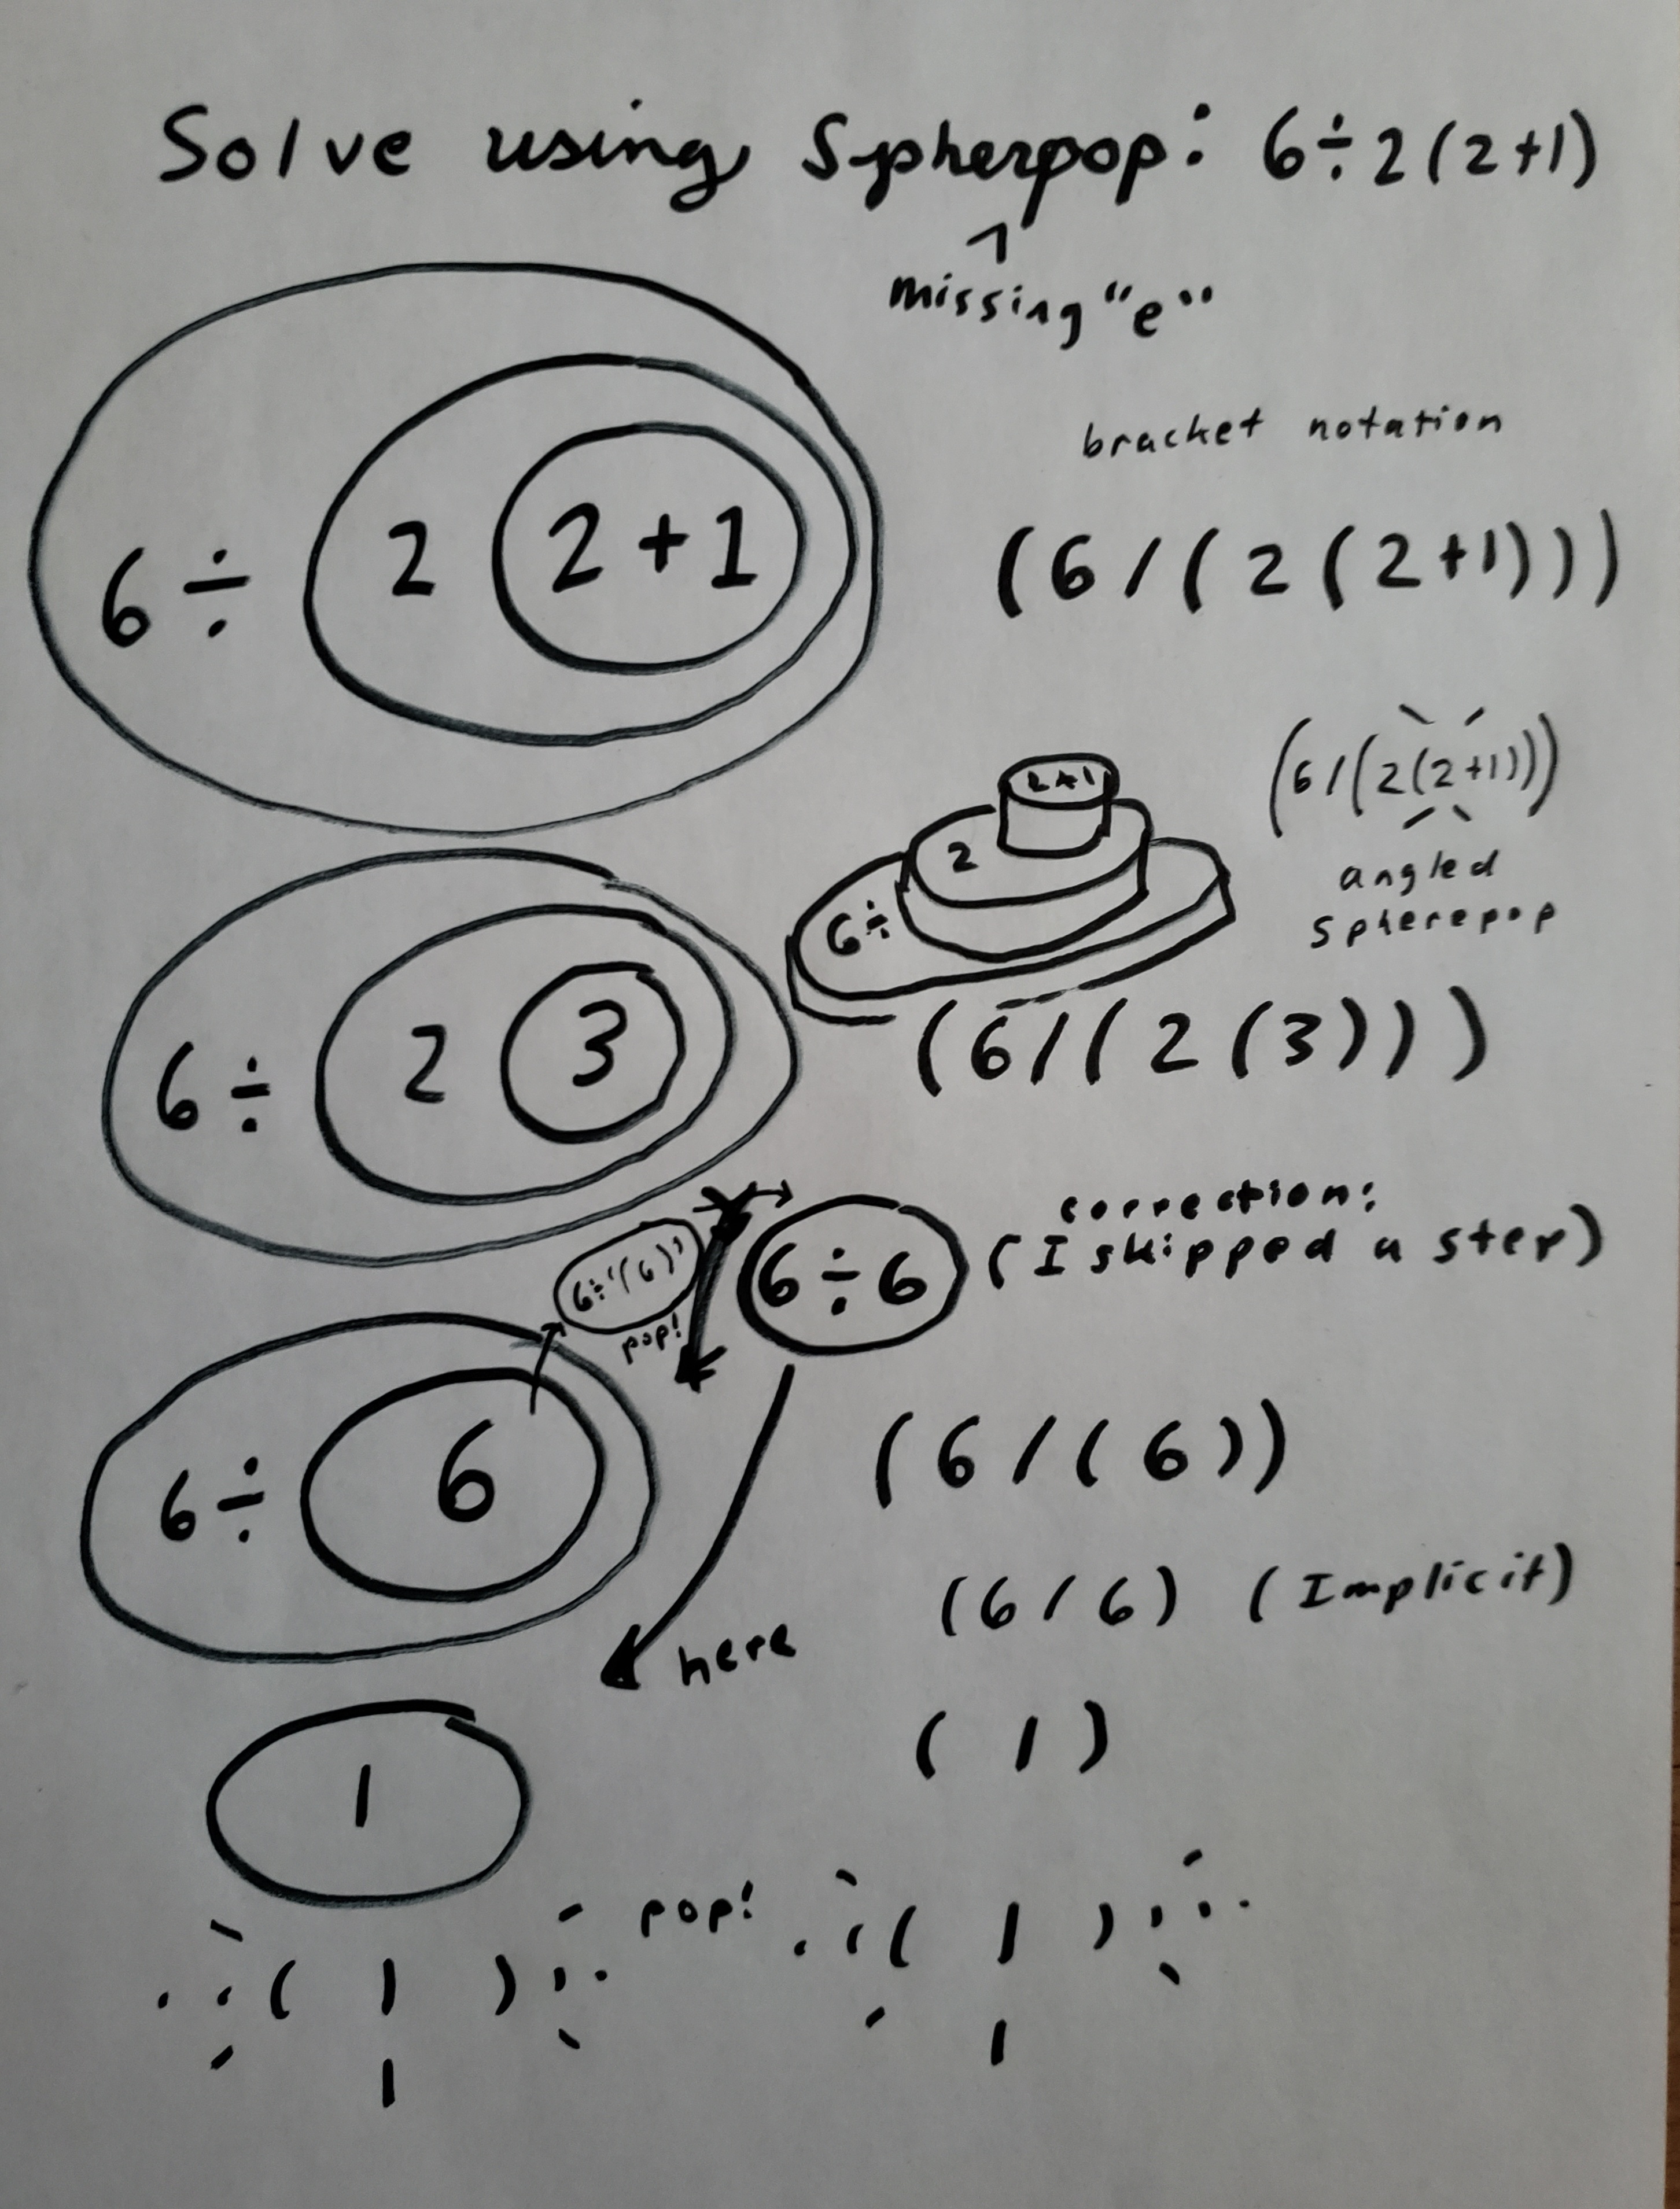 Solve using Spherpop: 6÷2(2+1)
^
missing "e"
bracket notation
6÷ 2 2+1
(6/(2(2+1)))
(6/(2(2+1)))
angled
spherepop
2+1
2
6÷
6÷ 2 3
(6/(2(3)))
correction:
(I skipped a step)
6÷6
6÷(6)
pop!
6÷ 6
(6/(6))
(6/6) (Implicit)
here
1
(1)
pop!
(1)
(1)
1
1